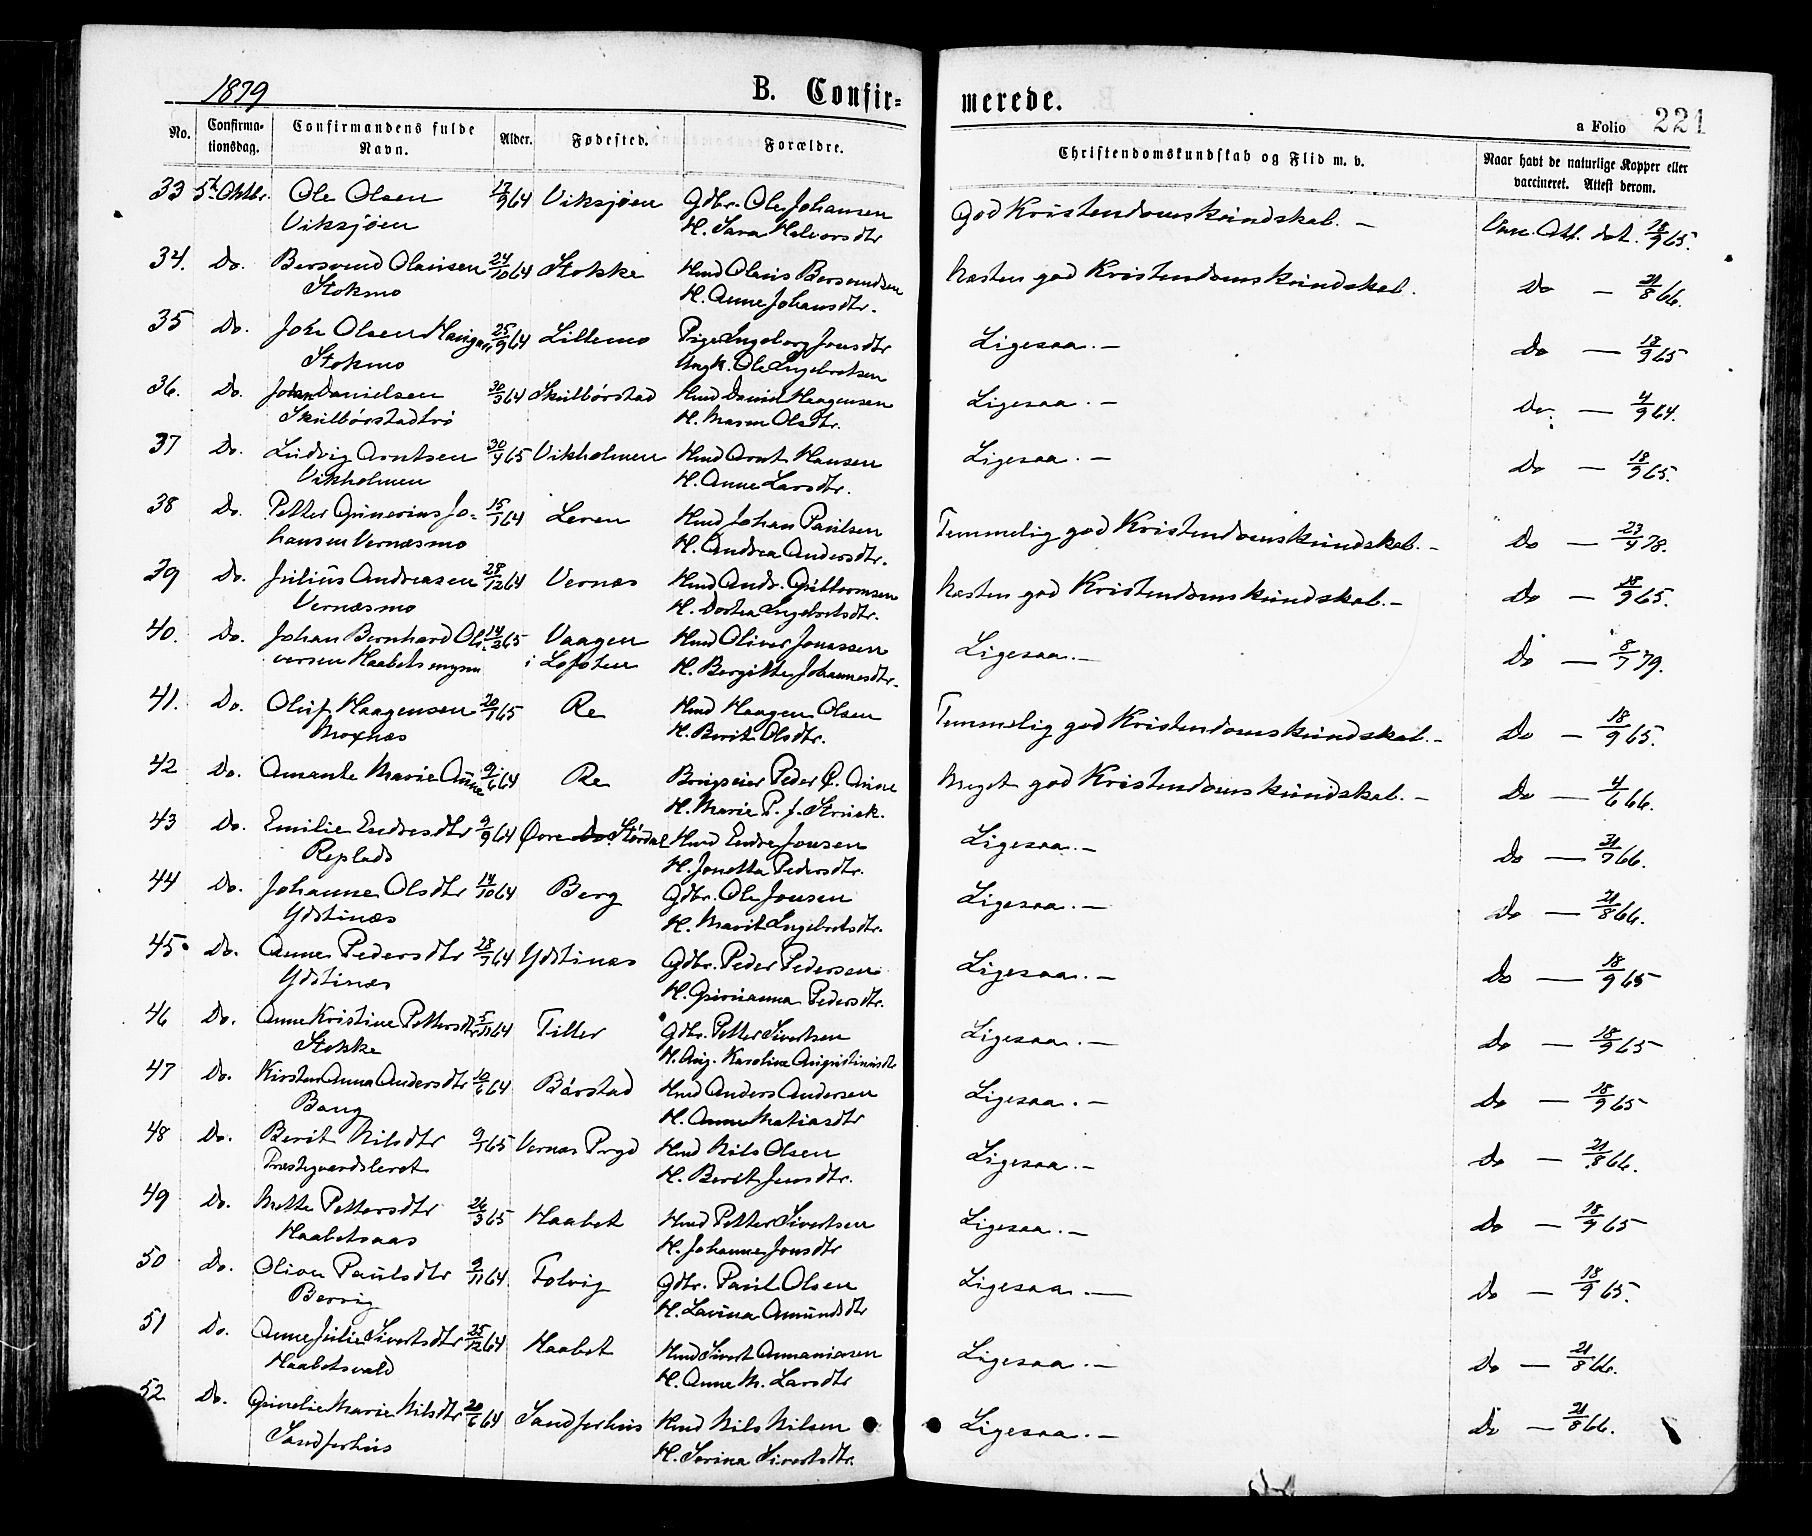 1879
B. Confir-
merede.
a Folio 221
No. Confirma-tionsdag. Confirmandens fulde Navn. Alder. Fødested. Forældre. Christendomskundskab og Flid m. v. Naar havt de naturlige Kopper eller vaccineret. Attest derom.
33 5te Oktbr. Ole Olsen 17/9 64 Viksjøen Gdbr. Ole Johansen God Kristendomskundskab. – Vacc. Att. dat. 18/9 65.
Viksjøen H. Sara Halvorsdtr
34. Do. Bersvend Olausen 24/10 64 Stokke Hmd Olaus Bersvendsen Næsten god Kristendomskundskab. Do – 21/8 66.
Stokmo H. Anne Johansdtr.
35 Do. John Olsen Haugan 25/9 64 Lillemo Pige Ingeborg Jonsdtr Ligesaa. – Do – 18/9 65
Stokmo Ungk. Ole Ingebretsen
36. Do. Johan Danielsen 30/3 64 Skulbørstad Hmd Daniel Haagensen Ligesaa. – Do. – 4/9 64.
Skulbørstadtrø H. Maren Olsdtr.
37 Do. Ludvig Arntsen 30/4 65 Vikholmen Hmd Arnt Hansen Ligesaa. – Do – 18/9 65.
Vikholmen H. Anne Larsdtr.
38 Do. Petter Gunerius Jo- 15/7 64 Leren Hmd Johan Paulsen Temmelig god Kristendomskundskab. – Do – 23/4 78.
hansen Vernæsmo H. Andrea Andersdtr.
39 Do. Julius Andreasen 28/12 64 Vernæs Hmd Andr. Guttormsen Næsten god Kristendomskundskab. – Do – 18/9 65.
Vernæsmo H. Dortea Ingebretsdtr.
40. Do. Johan Bernhard Oli- 14/2 65 Vaagen Hmd Oliver Jonassen Ligesaa. – Do – 8/7 79.
versen Haabetsmyrn i Lofoten H. Bergitte Johannesdtr.
41. Do. Oluf Haagensen 20/1 65 Re Hmd Haagen Olsen Temmelig god Kristendomskundskab. – Do – 18/9 65.
Moxnæs H. Berit Olsdtr.
42 Do. Amante Marie Aune 9/6 64 Re Brugseier Peder C. Aune Meget god Kristendomskundskab. – Do – 4/6 66.
H. Marie P. f. Struck.
43 Do. Emilie Endresdtr 9/9 64 Øvre do. Størdal Hmd Endre Jonsen Ligesaa. – Do – 31/7 66.
Replads H. Jonetta Pedersdtr.
44 Do. Johanne Olsdtr 14/10 64 Berg Gdbr. Ole Jonsen Ligesaa. – Do – 21/8 66.
Ydstinæs H. Marit Ingebretsdtr.
45. Do. Anne Pedersdtr 28/7 64 Ydstinæs Gdbr. Peder Pedersen Ligesaa. – Do – 18/9 65
Ydstinæs H. Gurianna Pedersdtr.
46 Do. Anne Kristine Pettersdtr 5/11 64 Tiller Gdbr. Petter Sivertsen Ligesaa. – Do – 18/9 65
Stokke H. Aug. Karoline Augustinusdtr
47 Do. Kirsten Anna Andersdtr 10/6 64 Børstad Hmd Anders Andersen Ligesaa. – Do – 18/9 65
Bang H. Anne Matiasdtr
48 Do. Berit Nilsdtr 9/1 65 Vernæs Prgd Hmd Nils Olsen Ligesaa. – Do – 21/8 66.
Præstegaardsleret H. Berit Jensdtr.
49 Do. Mette Pettersdtr 26/3 65 Haabet Hmd Petter Sivertsen Ligesaa. – Do – 18/9 65
Haabetsaas H. Johanne Jonsdtr
50 Do. Oline Paulsdtr 9/11 64 Folvig Gdbr. Paul Olsen Ligesaa. – Do – 18/9 65.
Bervig H. Lavina Amundsdtr
51 Do. Anne Julie Sivertsdtr 25/12 64 Haabet Hmd Sivert Annaniasen Ligesaa. – Do – 21/8 66.
Haabetsvald H. Anne M. Larsdtr
52 Do. Gunelie Marie Nilsdtr 20/6 64 Sandferhus Hmd Nils Nilsen Ligesaa. – Do – 21/8 66.
Sandferhus H. Serina Sivertsdtr.